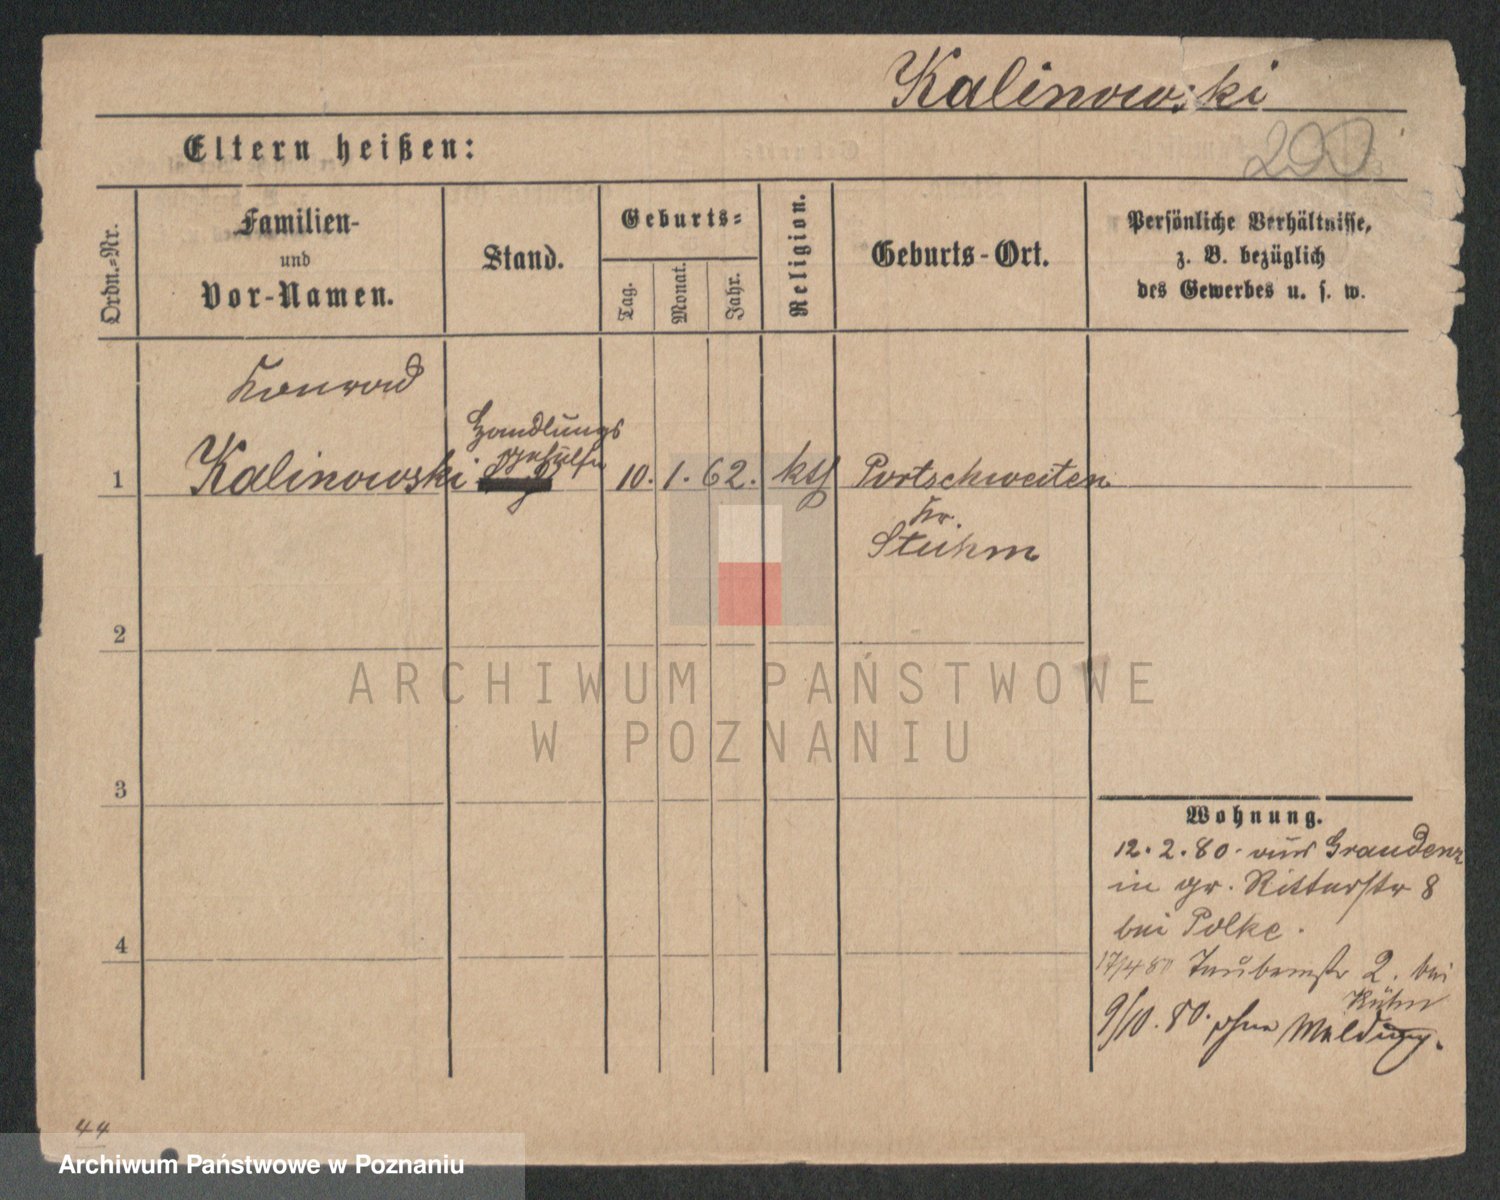 Kalinowski
200
Eltern heißen:
Ordn.-Nr.
Familien-
und
Vor-Namen.
Stand.
Geburts-
Tag.
Monat.
Jahr.
Religion.
Geburts-Ort.
Persönliche Verhältnisse,
z. B. bezüglich
des Gewerbes u. s. w.
Konrad
Handlungs
gehülfe
1 Kalinowski 10. 1. 62. kth Portschweiten
Kr.
Stuhm
2
3
4
Wohnung.
12. 2. 80. aus Graudenz
in gr. Ritterstr 8
bei Polke.
17/4 80 Taubenstr 2. bei
Kühn
9/10. 80. ohne Meldung.
44
ARCHIWUM PAŃSTWOWE
W POZNANIU
Archiwum Państwowe w Poznaniu